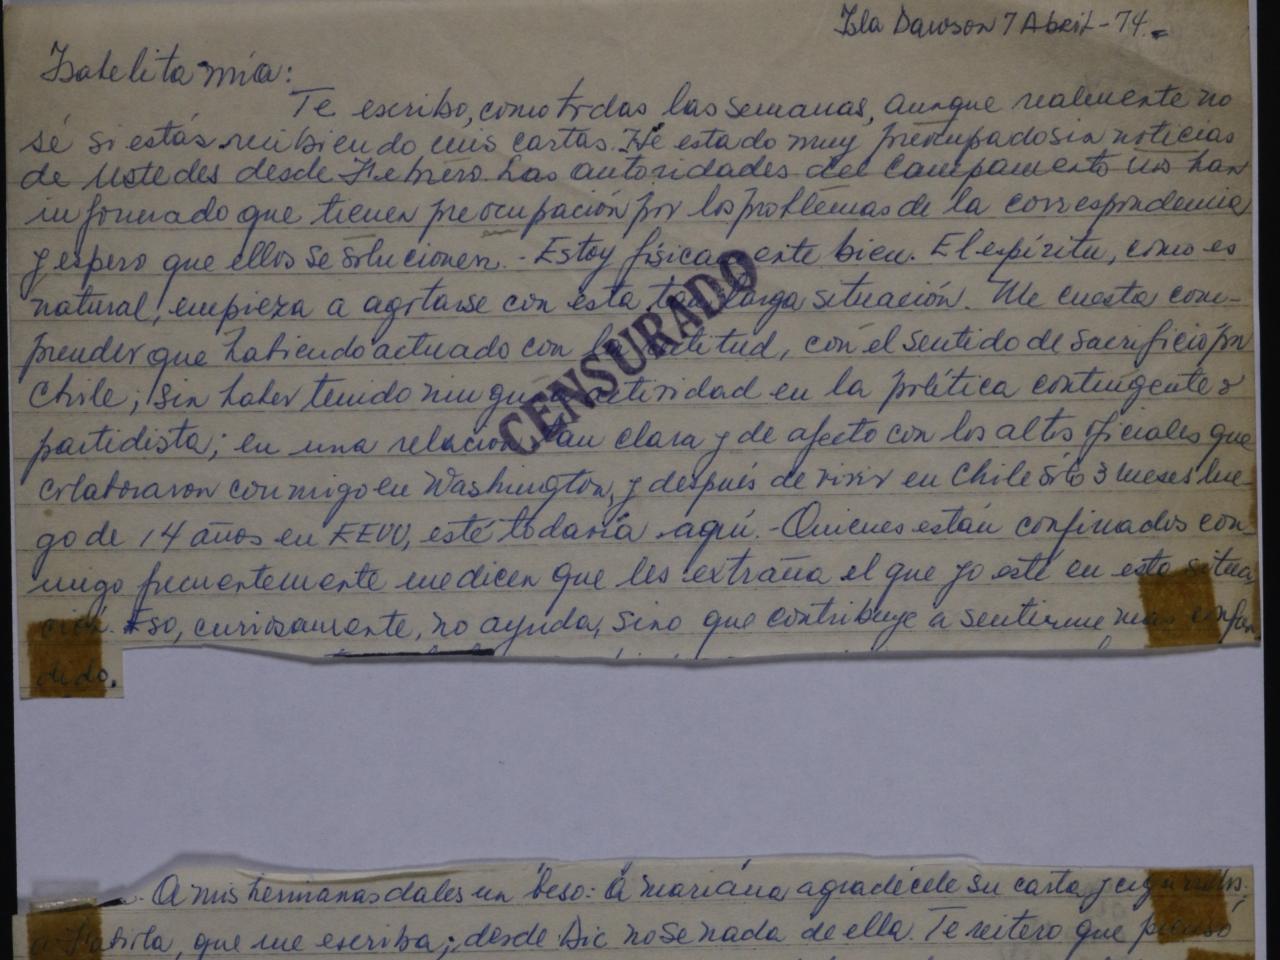 Isla Dawson 7 Abril-74.-
Isabelita mía:
Te escribo, como todas las semanas, aunque realmente no
sé si estás recibiendo mis cartas. He estado muy preocupado sin noticias
de Ustedes desde Febrero. Las autoridades del Campamento nos han
informado que tienen preocupación por los problemas de la correspondencia
y espero que ellos se solucionen. - Estoy físicamente bien. El espíritu, como es
natural, empieza a agitarse con esta tan larga situación. Me cuesta com-
prender que habiendo actuado con rectitud, con el sentido de sacrificio por
Chile; sin haber tenido ninguna actividad en la política contingente o
partidista; en una relación tan clara y de afecto con los altos oficiales que
colaboraron conmigo en Washington, y después de vivir en Chile sólo 3 meses lue-
go de 14 años en EEUU, esté todavía aquí. - Quienes están confinados con-
migo frecuentemente me dicen que les extraña el que yo esté en esta situa
ción. Eso, curiosamente, no ayuda, sino que contribuye a sentirme más confun
dido.
CENSURADO
A mis hermanas dales un beso: A Mariana agradécele su carta y cigarrillos.
a Fabiola, que me escriba; desde Dic no se nada de ella. Te reitero que pienso